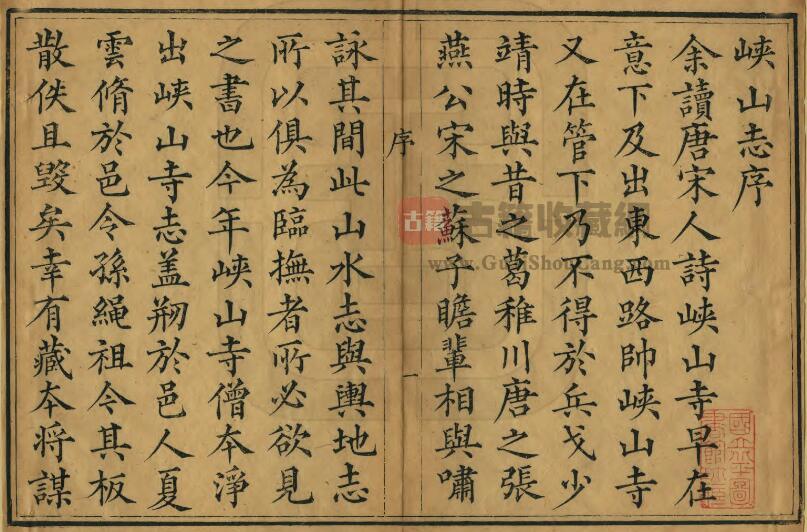 峽山志序
余讀唐宋人詩峽山寺早在
意下及出東西路帥峽山寺
又在管下乃不得於兵戈少
靖時與昔之葛稚川唐之張
燕公宋之蘇子瞻輩相與嘯
序
一
詠其間此山水志與輿地志
所以俱為臨撫者所必欲見
之書也今年峽山寺僧本淨
出峽山寺志盖刱於邑人夏
雲脩於邑令孫繩祖今其板
散佚且毀矣幸有藏本將謀
古籍 古籍收藏網
www.GujiShouCang.com